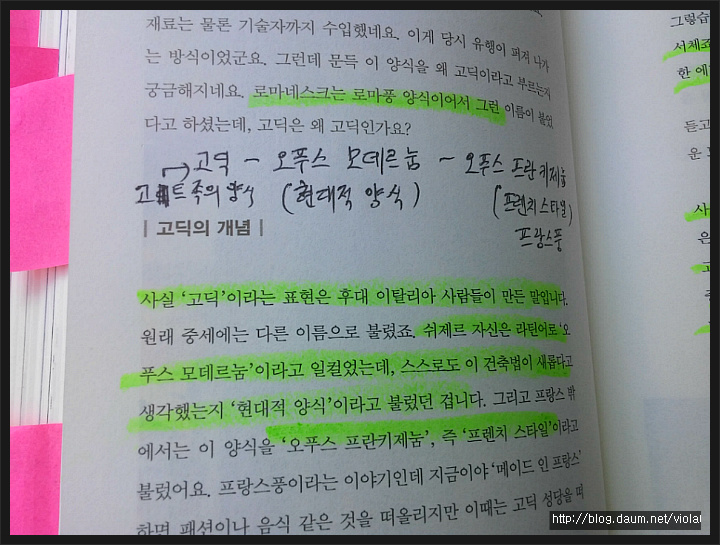 재료는 물론 기술자까지 수입했네요. 이게 당시 유행이 퍼져 나가
는 방식이었군요. 그런데 문득 이 양식을 왜 고딕이라고 부르는지
궁금해지네요. 로마네스크는 로마풍 양식이어서 그런 이름이 붙었
다고 하셨는데, 고딕은 왜 고딕인가요?
고딕 – 오푸스 모데르눔 ~ 오푸스 프란키제눔
고트족의 양식 (현대적 양식) (프렌치 스타일)
프랑스풍
| 고딕의 개념 |
사실 '고딕'이라는 표현은 후대 이탈리아 사람들이 만든 말입니다.
원래 중세에는 다른 이름으로 불렸죠. 쉬제르 자신은 라틴어로 '오
푸스 모데르눔'이라고 일컬었는데, 스스로도 이 건축법이 새롭다고
생각했는지 '현대적 양식'이라고 불렀던 겁니다. 그리고 프랑스 밖
에서는 이 양식을 '오푸스 프란키제눔', 즉 '프렌치 스타일'이라고
불렀어요. 프랑스풍이라는 이야기인데 지금이야 '메이드 인 프랑스'
하면 패션이나 음식 같은 것을 떠올리지만 이때는 고딕 성당을 떠
그렇습
서체죠
한 예
듣고
운
http://blog.daum.net/viola